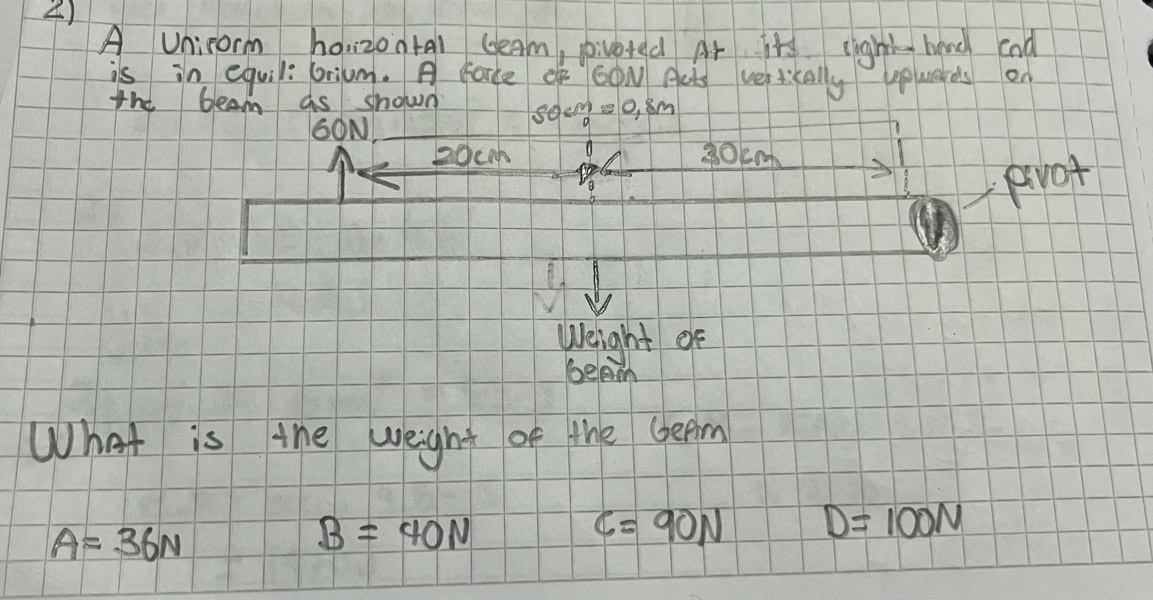 2)
A Uniform horizontal beam, pivoted At its right-hand end
is in equilibrium. A force of 60N Acts vertically upwards on
the beam as shown
50cm = 0,5m
60N
20cm 30cm
pivot
Weight of
beam
What is the weight of the beam
A= 36N B = 40N C= 90N D= 100N